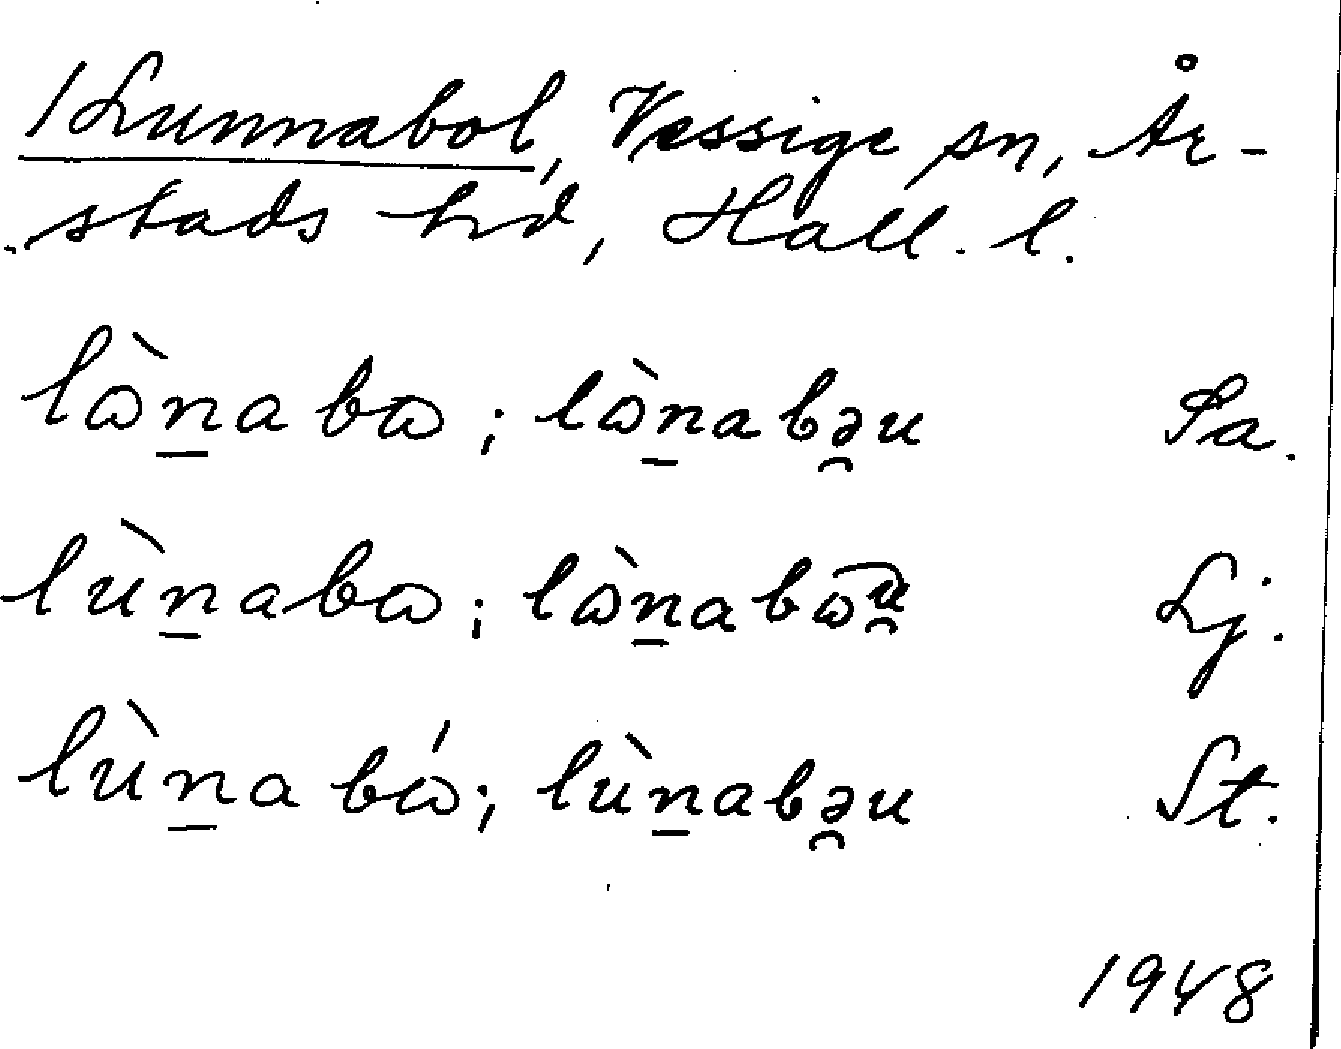 /Lunnabol, Vessige sn, År-
stads hd, Hall. l.
lɷ̀n̲abɷ; lɷ̀n̲abə̯u Sa.
lùn̲abɷ; lɷ̀n̲abɷ͡u̯ Lj.
lùn̲abɷ́; lùn̲abə̯u St.
1948